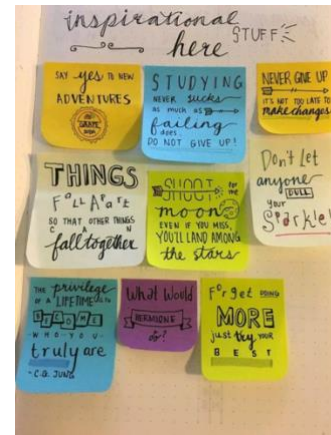 inspirational
STUFF
here
SAY yes TO NEW
ADVENTURES
STUDYING
NEVER sucks
as much as
failing
does.
DO NOT GIVE UP!
NEVER GIVE UP
IT'S NOT TOO LATE TO
make changes
THINGS
FALL APART
SO THAT OTHER THINGS
CAN
fall together
SHOOT for the
moon
EVEN IF YOU MISS,
YOU'LL LAND AMONG
the stars
Don't Let
anyone
DULL
your
Sparkle
THE privilege
OF A LIFETIME IS TO
BECOME
WHO YOU
truly are
- C.G. JUNG
What Would
HERMIONE
do?
Forget DOING
MORE
just try YOUR
BEST